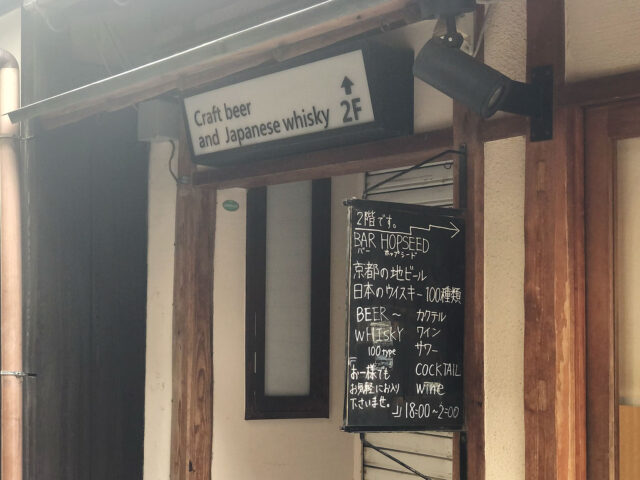 Craft beer
and Japanese whisky
2F
2階です。
BAR HOPSEED
バー ホップシード
京都の地ビール
日本のウイスキー100種類
BEER～
WHISKY
100type
カクテル
ワイン
サワー
COCKTAIL
wine
「お一様でも
お気軽にお入り
下さいませ。」
18:00～2:00